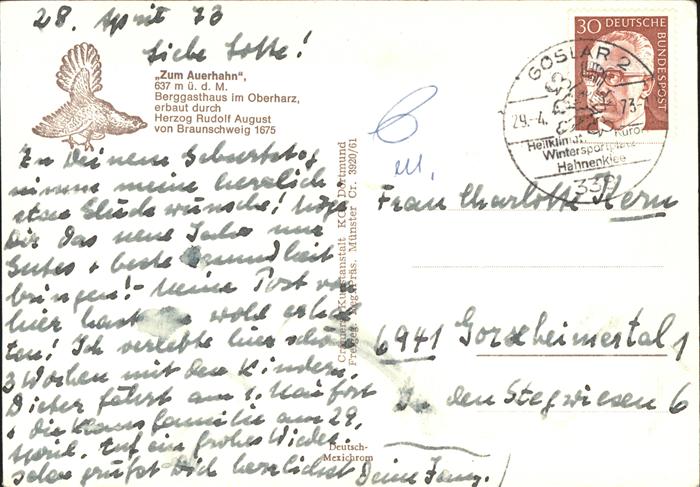 28. April 73
Liebe Lotte!
„Zum Auerhahn",
637 m ü. d. M.
Berggasthaus im Oberharz,
erbaut durch
Herzog Rudolf August
von Braunschweig 1675
Zu Deinem Geburtstag
nimm meine herzlich
sten Glückwünsche! Möge
Dir das neue Jahr nur
Gutes + beste Gesundheit
bringen! - Meine Post von
hier hast wohl erhal
ten! Ich verlebte hier schöne
3 Wochen mit den Kindern.
Dieter fährt am 1. Mai fort
+ die Klausfamilie am 29.
April. Auf ein frohes Wieder
sehn grüßt Dich herzlichst Deine
Cramers Kunstanstalt KG, Dortmund
Freigeg. Reg.-Präs. Münster Cr. 3920/61
Deutsch-
Mexichrom
30 DEUTSCHE
BUNDESPOST
GOSLAR 2
29.-4. 73-
Heilklimat. Kuro
Wintersportplatz
Hahnenklee
339
Frau Charlotte Kern
6941 Gorxheimertal 1
In den Stegwiesen 6